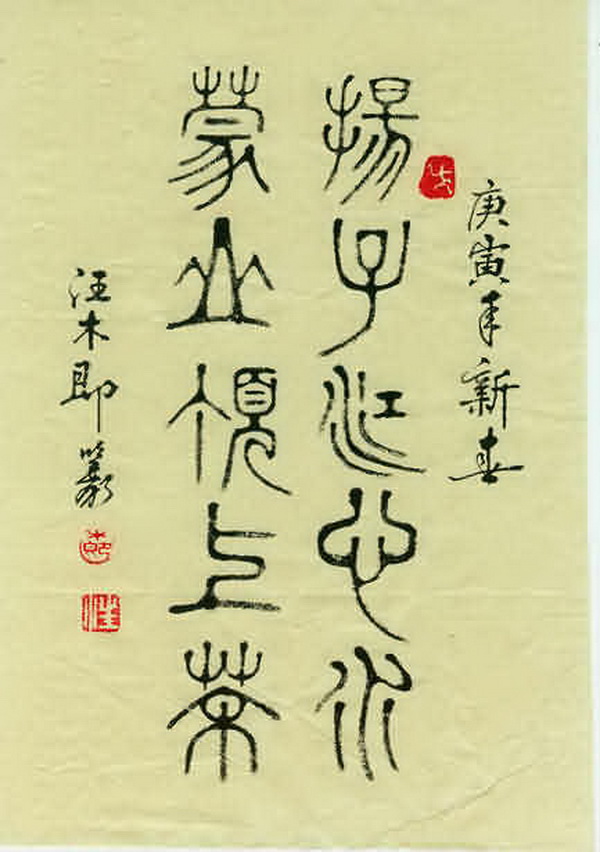 庚寅年新春
揚子江心水
蒙山顶上茶
汪木即篆